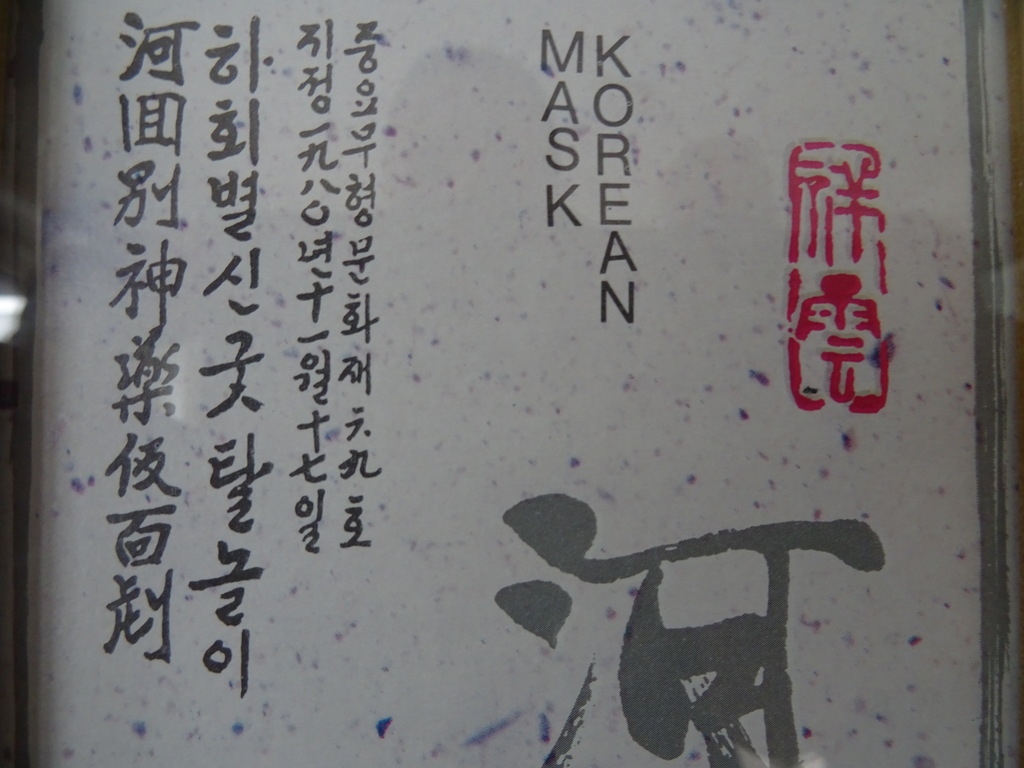 祥雲
河
KOREAN
MASK
중요무형문화재六九호
지정一九八○년十一월十七일
하회별신굿탈놀이
河回別神樂仮面劇